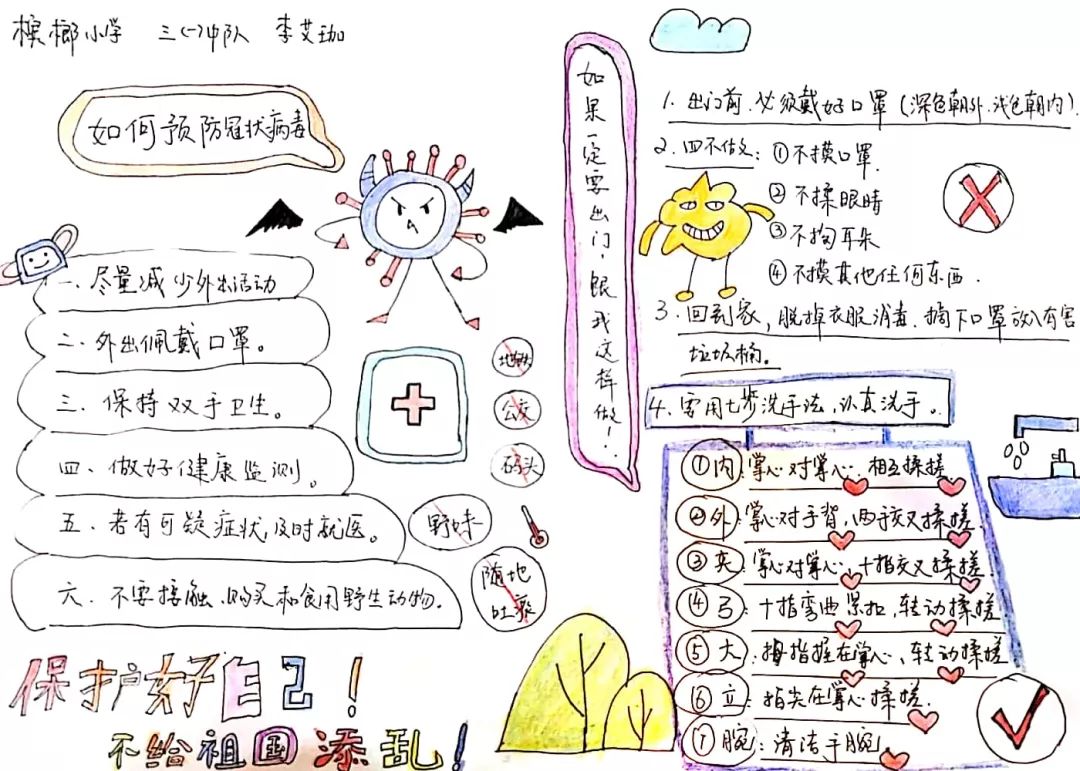 槟榔小学 三(一)中队 李艾珈
如何预防冠状病毒
一、尽量减少外出活动
二、外出佩戴口罩。
三、保持双手卫生。
四、做好健康监测。
五、若有可疑症状,及时就医。
六、不要接触、购买和食用野生动物。
地铁
公交
码头
野味
随地
吐痰
保护好自己!
不给祖国添乱!
如果一定要出门,跟我这样做!
1. 出门前,必须戴好口罩(深色朝外,浅色朝内)
2. 四不做:①不摸口罩.
②不揉眼睛
③不掏耳朵
④不摸其他任何东西.
3. 回到家,脱掉衣服消毒,摘下口罩放入有害
垃圾桶。
4. 需用七步洗手法,认真洗手。
①内:掌心对掌心,相互揉搓
②外:掌心对手背,两手交叉揉搓
③夹:掌心对掌心,十指交叉揉搓
④弓:十指弯曲紧扣,转动揉搓
⑤大:拇指握在掌心,转动揉搓
⑥立:指尖在掌心揉搓.
⑦腕:清洁手腕